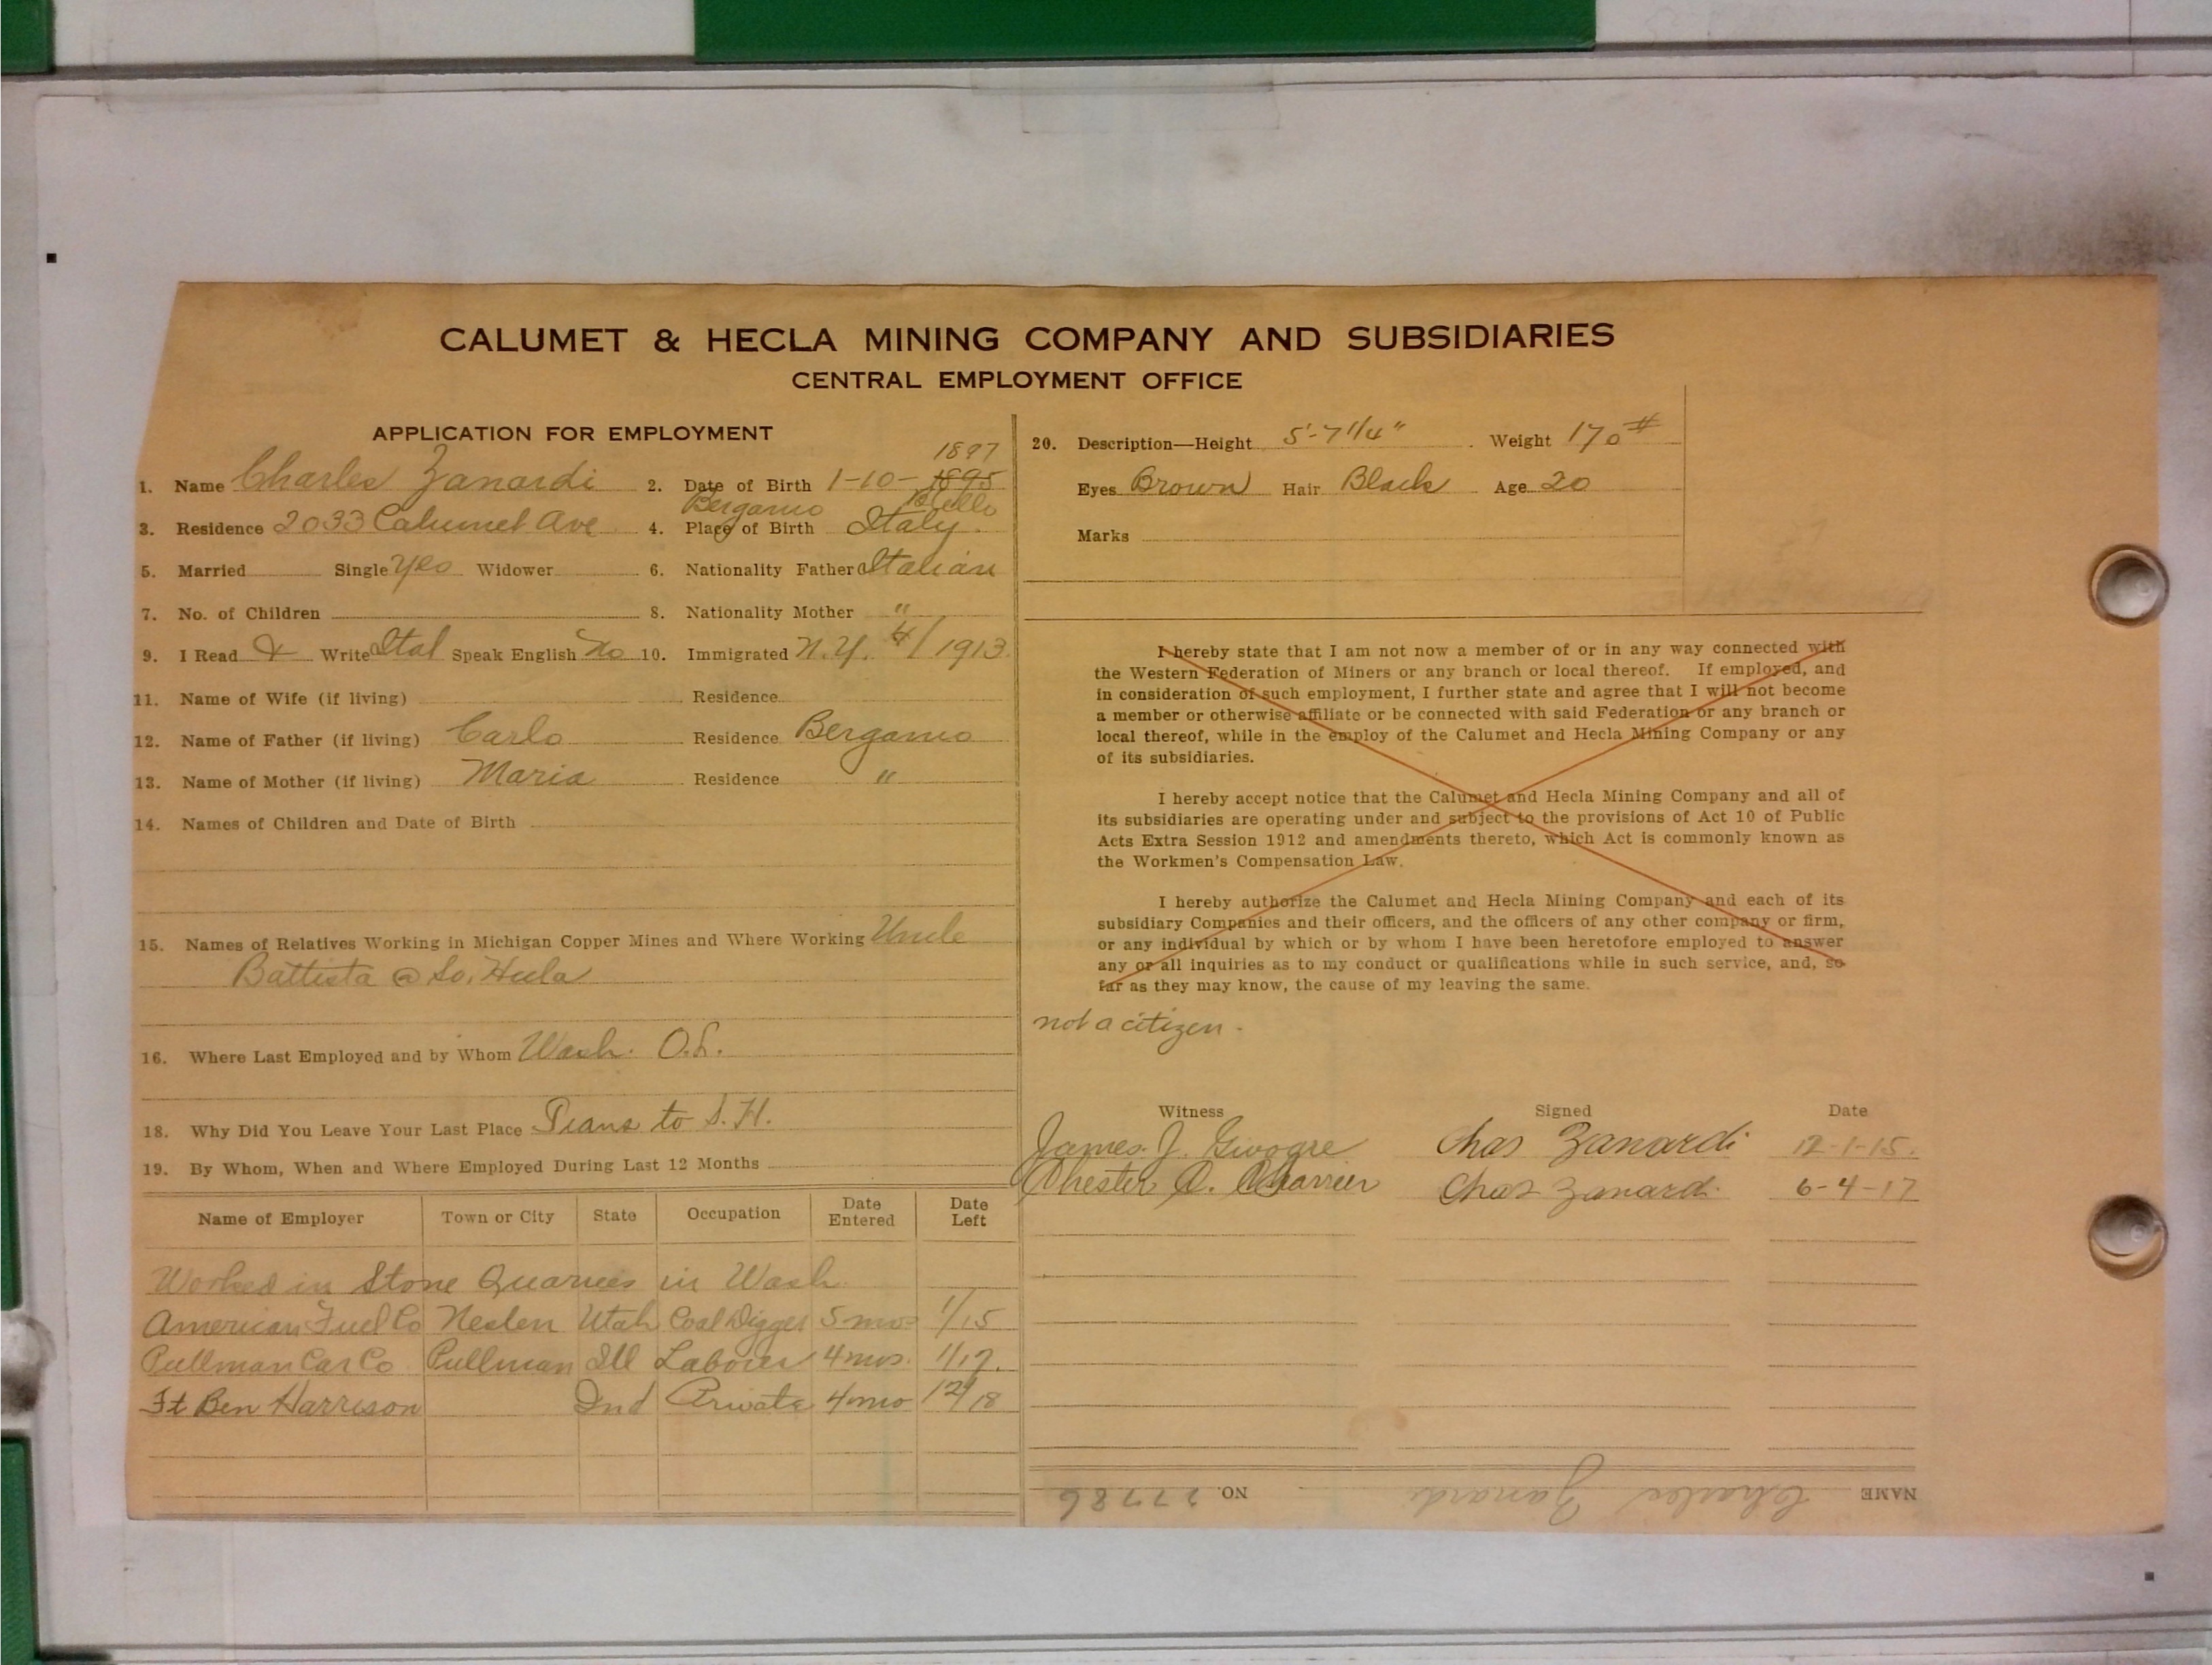 CALUMET & HECLA MINING COMPANY AND SUBSIDIARIES
CENTRAL EMPLOYMENT OFFICE
APPLICATION FOR EMPLOYMENT
1897
1. Name Charles Zanardi 2. Date of Birth 1-10-1895
Bergamo
3. Residence 2033 Calumet Ave 4. Place of Birth Italy
5. Married Single Yes Widower 6. Nationality Father Italian
7. No. of Children 8. Nationality Mother "
9. I Read & Write Ital Speak English No 10. Immigrated N.Y. 4/1913.
11. Name of Wife (if living) Residence
12. Name of Father (if living) Carlo Residence Bergamo
13. Name of Mother (if living) Maria Residence "
14. Names of Children and Date of Birth
15. Names of Relatives Working in Michigan Copper Mines and Where Working Uncle
Battista @ So. Hecla
16. Where Last Employed and by Whom Wash. O.L.
18. Why Did You Leave Your Last Place Trans to S.H.
19. By Whom, When and Where Employed During Last 12 Months
Name of Employer Town or City State Occupation Date Entered Date Left
Worked in Stone Quarries in Wash.
American Fuel Co Neslen Utah Coal Digger 5 mos 1/15
Pullman Car Co Pullman Ill Laborer 4 mos. 1/17.
Ft Ben Harrison Ind Private 4 mo 12/18
20. Description—Height 5'-7 1/4" Weight 170 #
Eyes Brown Hair Black Age 20
Marks
I hereby state that I am not now a member of or in any way connected with
the Western Federation of Miners or any branch or local thereof. If employed, and
in consideration of such employment, I further state and agree that I will not become
a member or otherwise affiliate or be connected with said Federation or any branch or
local thereof, while in the employ of the Calumet and Hecla Mining Company or any
of its subsidiaries.
I hereby accept notice that the Calumet and Hecla Mining Company and all of
its subsidiaries are operating under and subject to the provisions of Act 10 of Public
Acts Extra Session 1912 and amendments thereto, which Act is commonly known as
the Workmen's Compensation Law.
I hereby authorize the Calumet and Hecla Mining Company and each of its
subsidiary Companies and their officers, and the officers of any other company or firm,
or any individual by which or by whom I have been heretofore employed to answer
any or all inquiries as to my conduct or qualifications while in such service, and, so
far as they may know, the cause of my leaving the same.
not a citizen -
Witness Signed Date
James. J. Chas Zanardi 12-1-15.
Chester Chas Zanardi 6-4-17
NAME Charles Zanardi NO. 27786